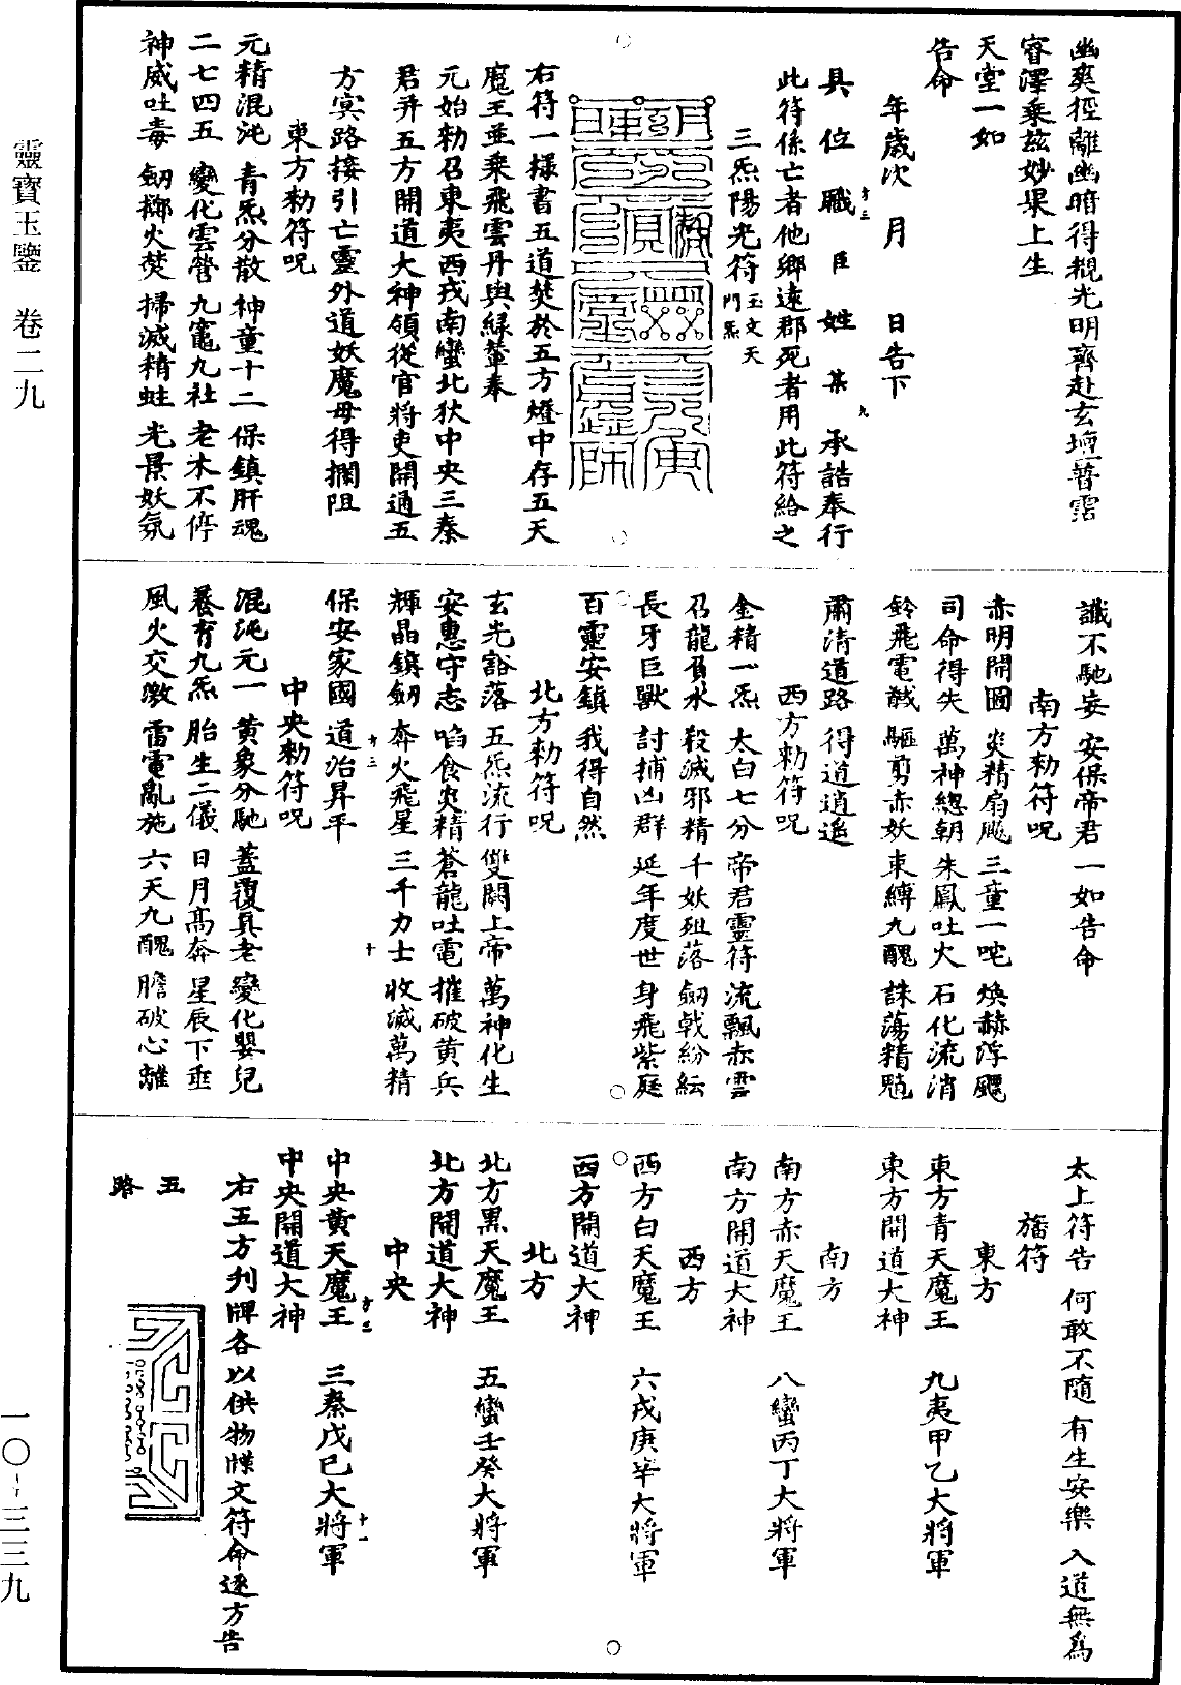 幽爽徑離幽暗得覩光明齊赴玄壇普霑
睿澤乗兹妙果上生
天堂一如
告命
年歲次　月　　日告下
具　位　職　臣　姓　某　承誥奉行
此符係亡者他鄉遠郡死者用此符給之
三炁陽光符 玉文天門炁
右符一樣書五道焚於五方燈中存五天
魔王並乗飛雲丹輿緑輦奉
元始勑召東夷西戎南蠻北狄中央三秦
君并五方開道大神領從官將吏開通五
方㝠路接引亡靈外道妖魔毋得攔阻
東方勑符呪
元精混沌　青炁分散　神童十二　保鎮肝魂
二七四五　變化雲營　九竈九社　老木不停
神威吐毒　劒擲火焚　掃滅精蛀　光景妖氛
讖不馳妄　安保帝君　一如告命
南方勑符呪
赤明開圖　炎精扇颷　三童一咤　煥赫浮飃
司命得失　萬神總朝　朱鳳吐火　石化流消
鈴飛電戩　驅剪赤妖　束縛九醜　誅蕩精魈
肅清道路　得道逍遥
西方勑符呪
金精一炁　太白七分　帝君靈符　流飄赤雲
召龍負水　殺滅邪精　千妖殂落　劒戟紛紜
長牙巨獸　討捕凶群　延年度世　身飛紫庭
百靈安鎮　我得自然
北方勑符呪
玄光豁落　五炁流行　雙闕上帝　萬神化生
安惠守志　啗食炎精　蒼龍吐電　摧破黄兵
輝晶鎮劒　奔火飛星　三千力士　收滅萬精
保安家國　道冶昇平
中央勑符呪
混沌元一　黄象分馳　蓋覆真老　變化嬰兒
養育九炁　胎生二儀　日月髙奔　星辰下垂
風火交激　雷電亂施　六天九醜　膽破心離
太上符告　何敢不隨　有生安樂　入道無爲
旛符
東方
東方青天魔王　九夷甲乙大將軍
東方開道大神
南方
南方赤天魔王　八蠻丙丁大將軍
南方開道大神
西方
西方白天魔王　六戎庚辛大將軍
西方開道大神
北方
北方黒天魔王　五蠻壬癸大將軍
北方開道大神
中央
中央黄天魔王　三秦戊巳大將軍
中央開道大神
右五方列牌各以供物牒文符命逐方告
五
路
靈寶玉鑒　卷二九
一〇—三三九